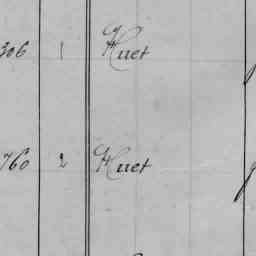 306 1 Huet
760 2 Huet